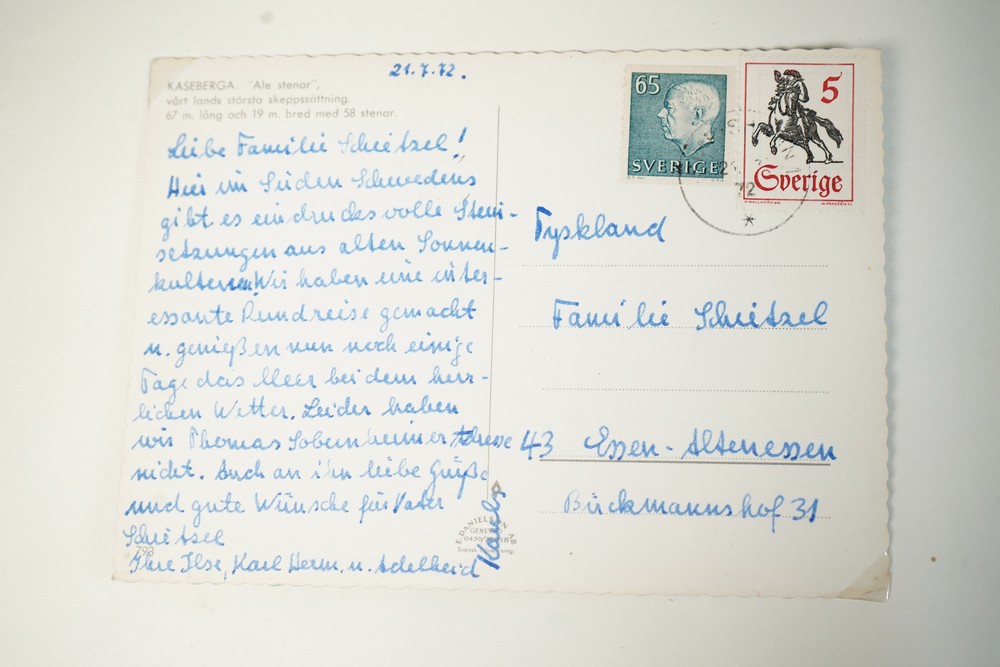 21.7.72.
KASEBERGA. "Ale stenar",
vårt lands största skeppssättning.
67 m. lång och 19 m. bred med 58 stenar.
Liebe Familie Scheitzel!
Hier im Süden Schwedens
gibt es eindrucksvolle Stein-
setzungen aus alten Sonnen-
kulturen. Wir haben eine inter-
essante Rundreise gemacht
u. genießen nun noch einige
Tage das Meer bei dem herr-
lichen Wetter. Leider haben
wir Thomas Sobernheimer Adresse
nicht. Auch an ihn liebe Grüße
und gute Wünsche für Vater
Scheitzel
Ihre Ilse, Karl Herm. u. Adelheid
793
65
SVERIGE
5
Sverige
72
Tyskland
Familie Scheitzel
43 Essen-Altenessen
Bückmannshof 31